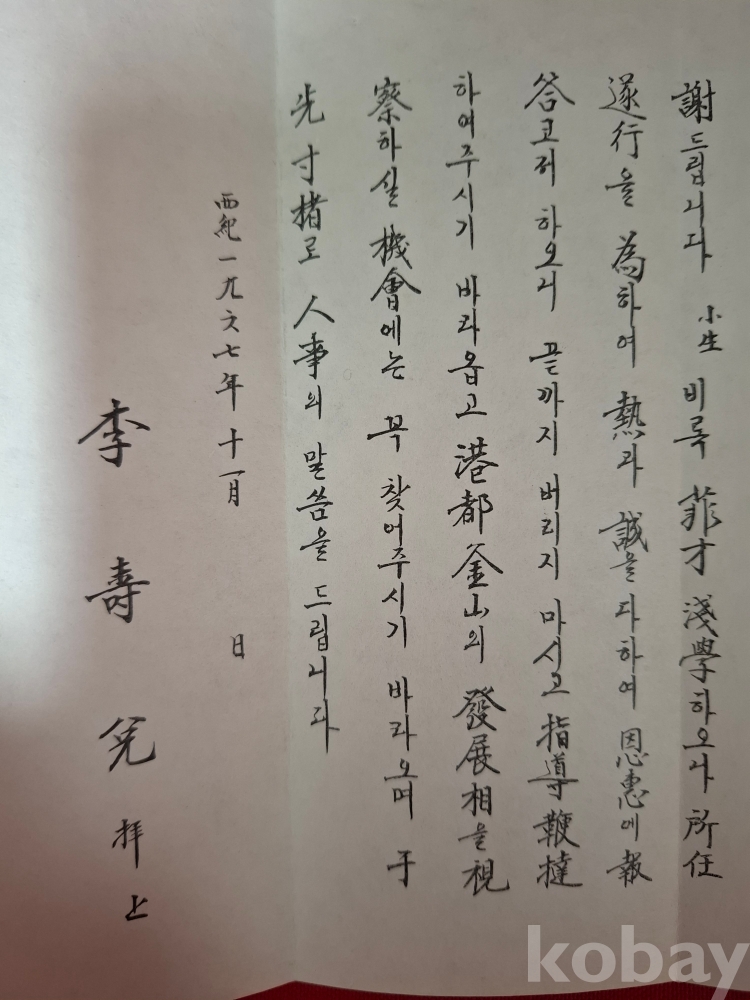 謝드립니다 小生 비록 菲才 淺學하오나 所任
遂行을 為하여 熱과 誠을 다하여 恩惠에 報
答코저 하오니 끝까지 버리지 마시고 指導鞭撻
하여주시기 바라옵고 港都釜山의 發展相을 視
察하실 機會에는 꼭 찾어주시기 바라오며 于
先 寸楮로 人事의 말씀을 드립니다
西紀一九六七年十一月 日
李壽 拜上
kobay